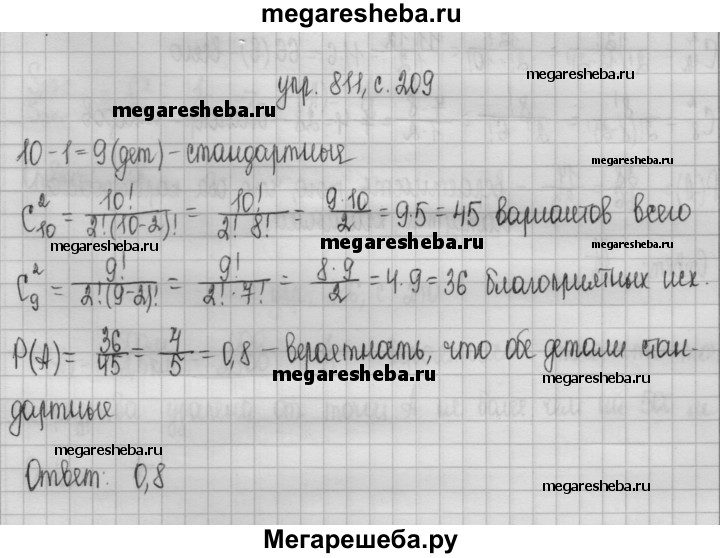 megaresheba.ru
упр. 811, с. 209
megaresheba.ru
megaresheba.ru
10-1=9(дет) - стандартные
megaresheba.ru
C₁₀² = 10!/2!(10-2)! = 10!/2! 8! = 9·10/2 = 9·5 = 45 вариантов всего
megaresheba.ru
megaresheba.ru
megaresheba.ru
C₉² = 9!/2!(9-2)! = 9!/2!·7! = 8·9/2 = 4·9 = 36 благоприятных исх.
megaresheba.ru
P(A) = 36/45 = 4/5 = 0,8 - вероятность, что обе детали стан-
megaresheba.ru
дартные
megaresheba.ru
Ответ: 0,8
megaresheba.ru
Мегарешеба.ру